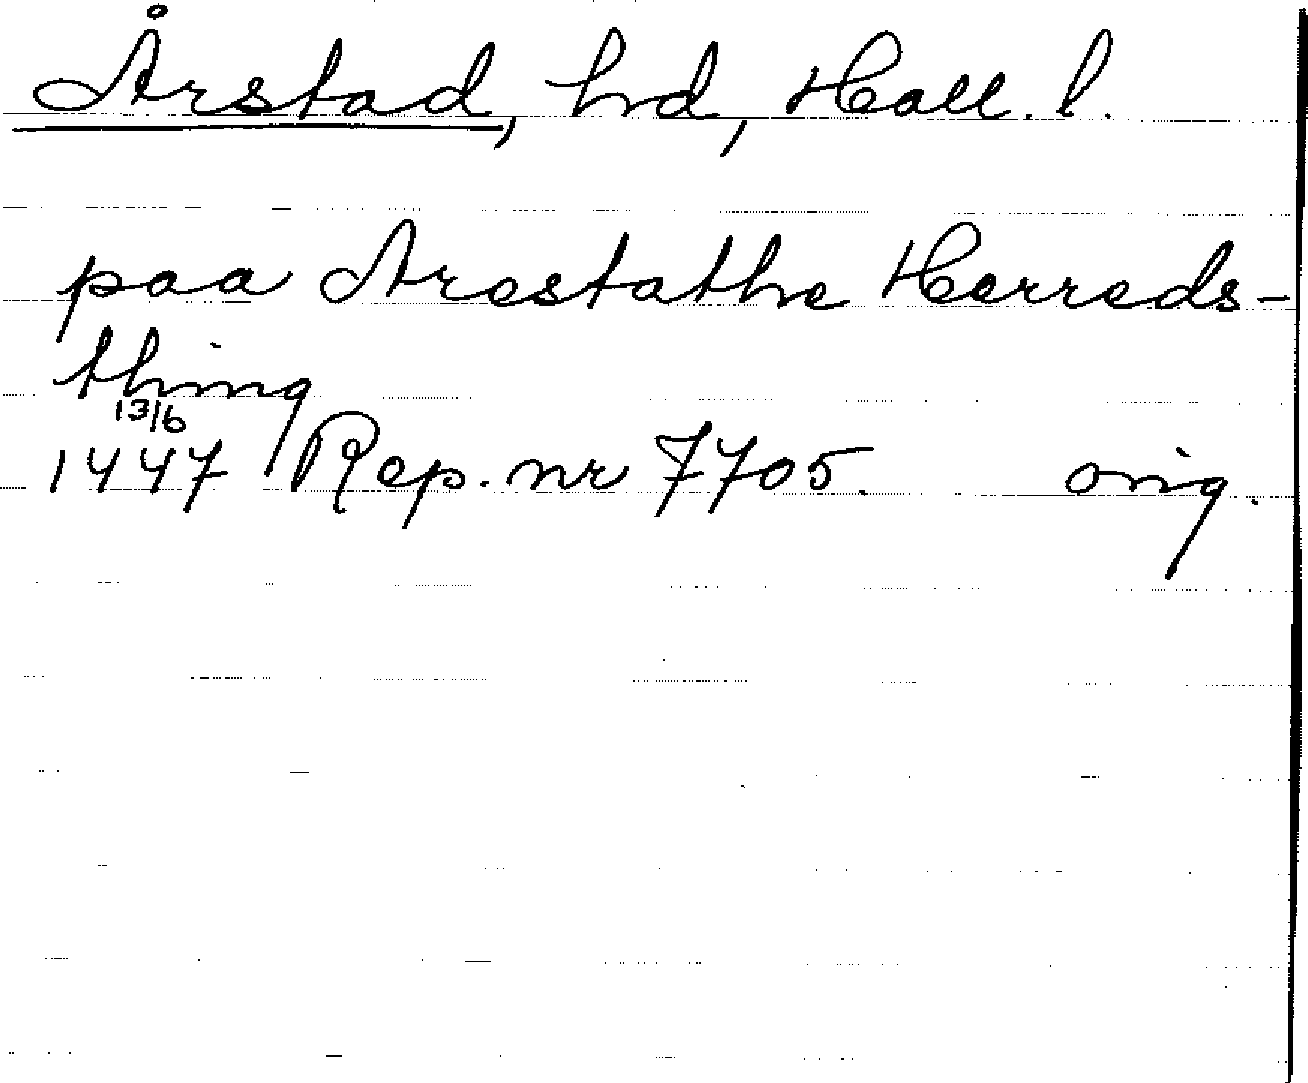 Årstad, hd, Hall. l.
paa Arestathe Herreds-
thing
13/6
1447 Rep. nr 7705. orig.